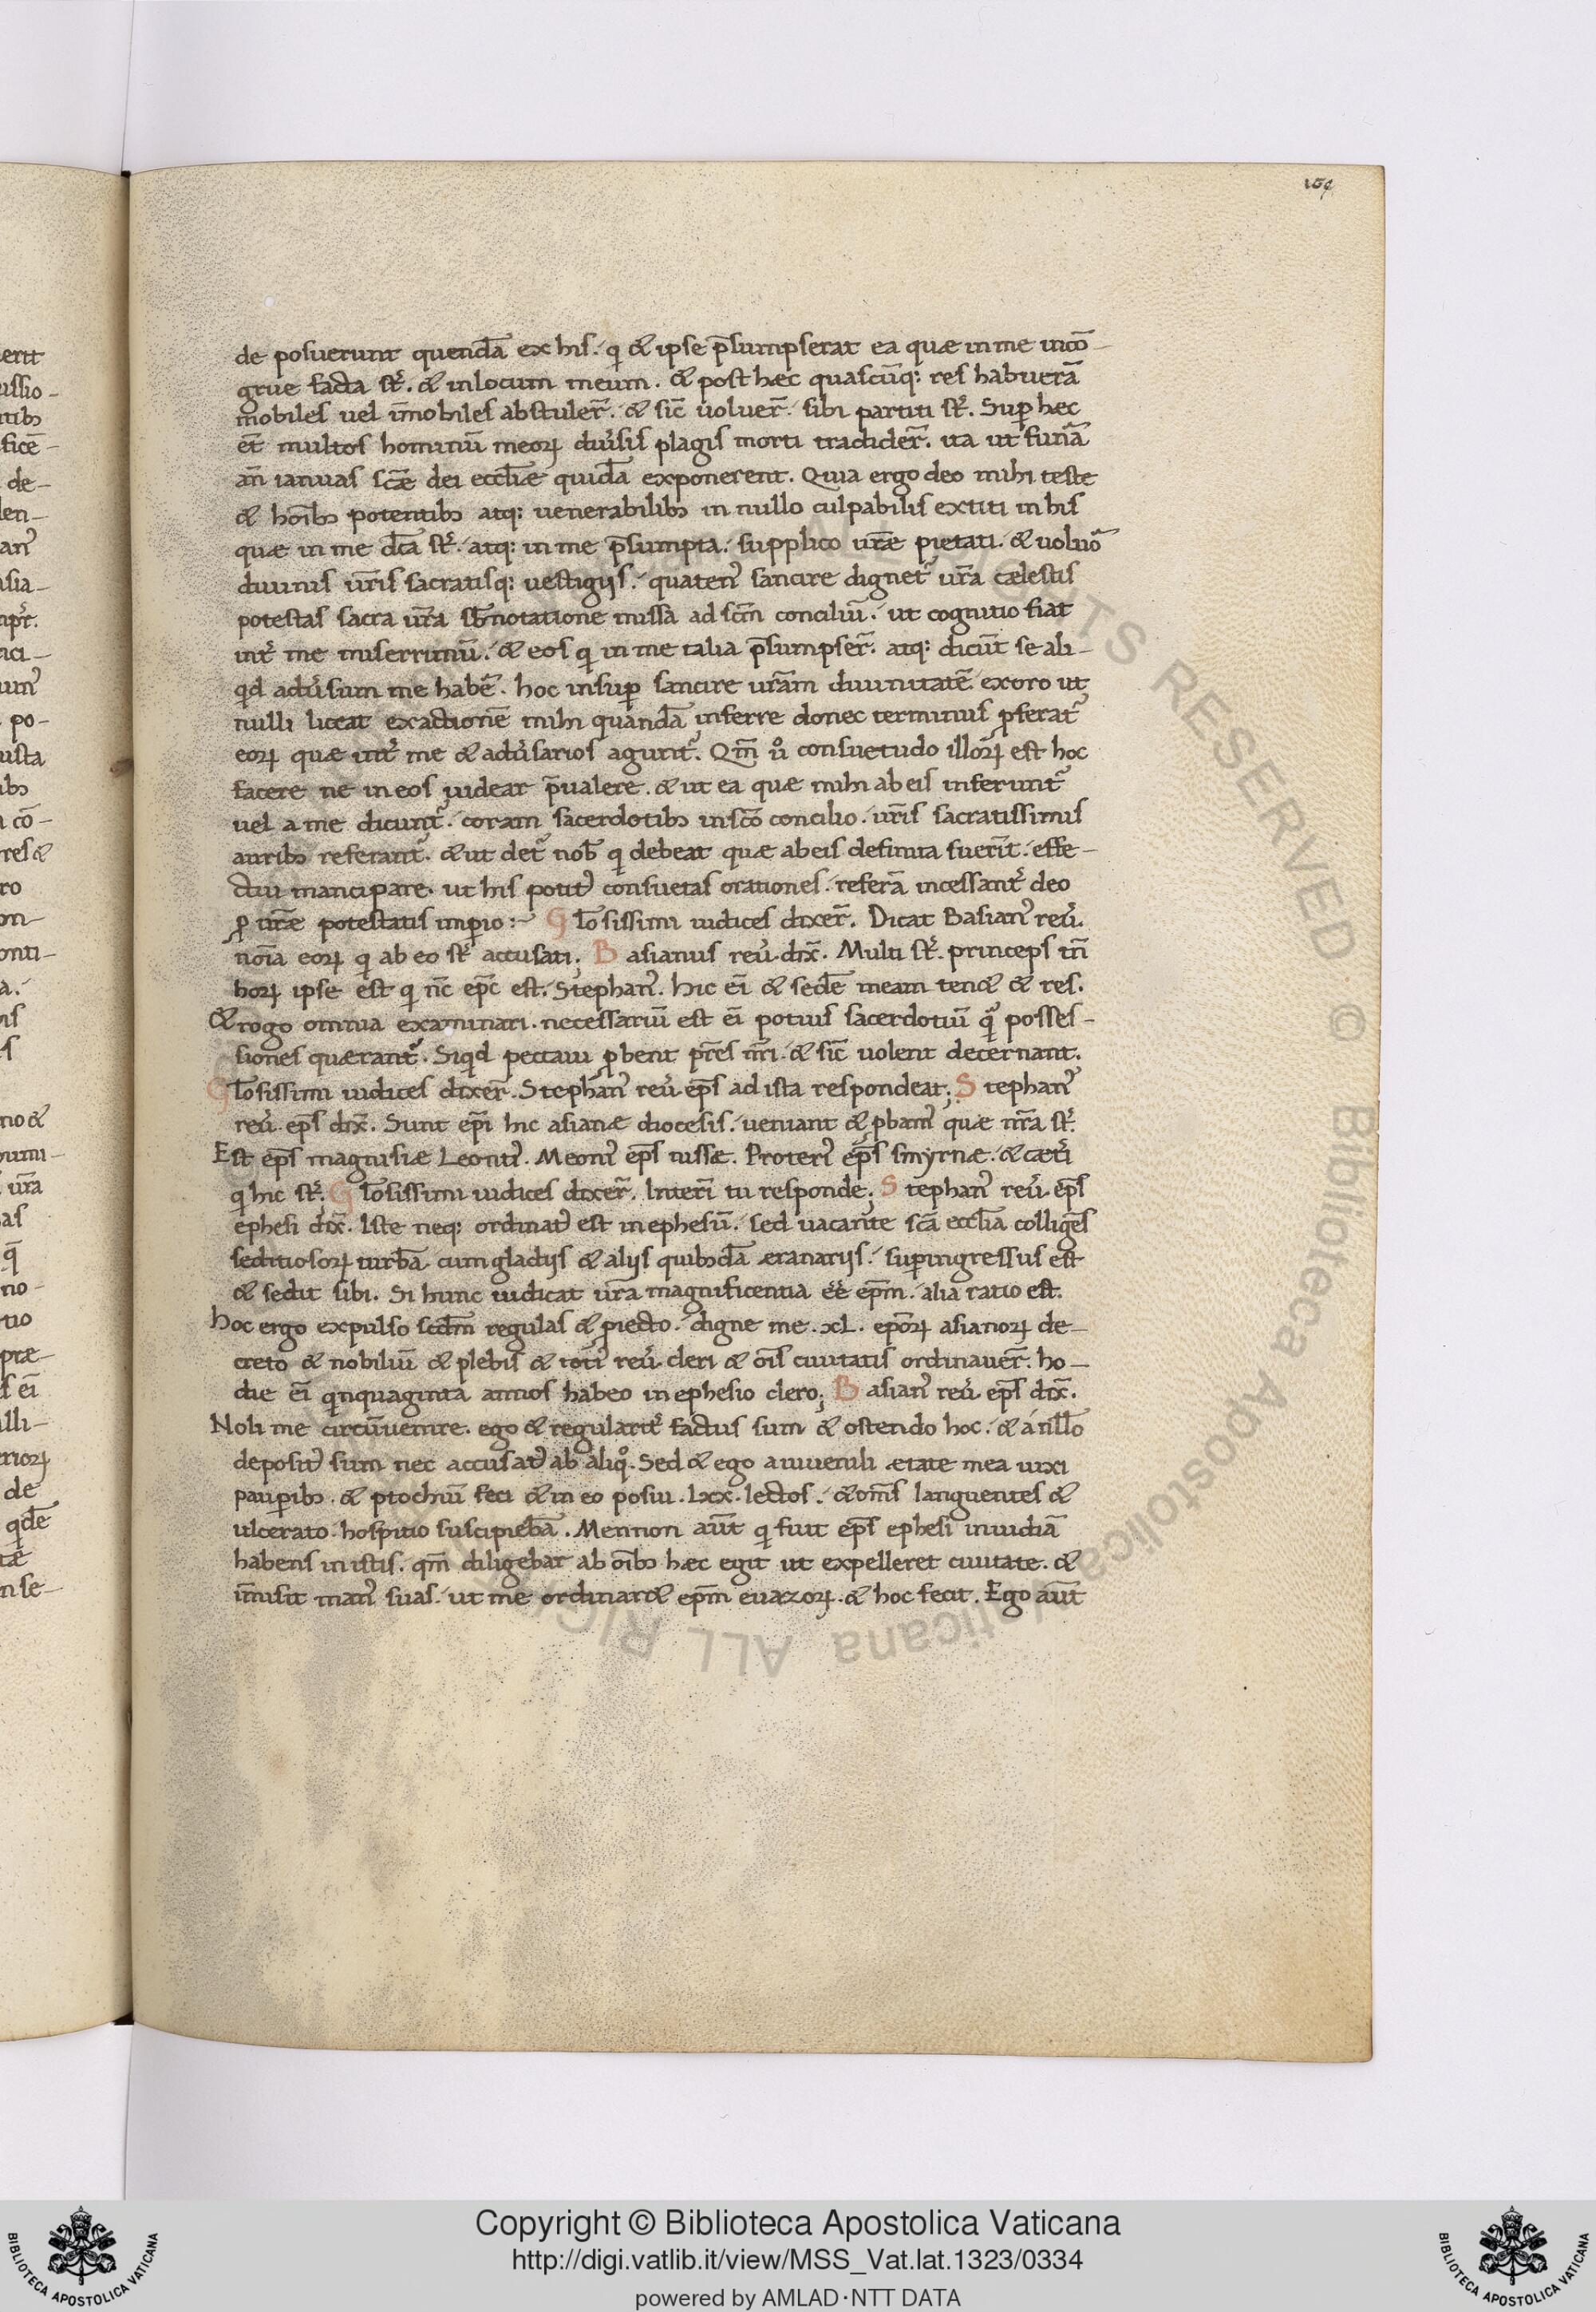 159
de posuerunt quendā ex his. q& ipse p̄sumpserat ea quæ in me incō-
grue facta st̄. & in locum meum. & post hæc quascūq: res habuerā
mobiles uel īmobiles abstuler̄. & sic̄ uoluer̄. sibi partiti st̄. Sup hec
et̄ multos hominū meoꝝ diuersis plagis morti tradider̄. ita ut funā
an̄ ianuas sc̄æ dei eccl̄iæ quidā exponerent. Quia ergo deo mihi teste
& hoīb; potentib; atq: uenerabilib; in nullo culpabilis extiti in his
quæ in me dc̄a st̄. atq: in me p̄sumpta. supplico ur̄æ pietati. & uoluō
diuinis ur̄is sacratisq: uestigijs. quaten' sancire dignet' ur̄a cælestis
potestas sacra ur̄a sb̄notatione missa ad sc̄m conciliū. ut cognitio fiat
int' me miserrimū. & eos q in me talia p̄sumpser̄. atq: dicūt se ali-
qd adūsum me habē. hoc insup sancire ur̄am diuinitatē exoro ut
nulli liceat exactionē mihi quandā inferre donec terminus ꝓferat'
eoꝝ quæ int' me & adūsarios agunt'. Qm̄ ů consuetudo illoꝝ est hoc
facere ne in eos uidear p̄ualere. & ut ea quæ mihi ab eis inferunt'
uel a me dicunt'. coram sacerdotib; in sc̄o concilio. ur̄is sacratissimis
aurib; referant'. & ut det' nob̄ q debeat quæ ab eis definita fuerīt. effe-
ctui mancipare. ut his potit' consuetas orationes. referā incessant' deo
ꝓ ur̄æ potestatis imperio:- Glōsissimi iudices dixer̄. Dicat Basian' reū.
noīa eoꝝ q ab eo st̄ accusati; Basianus reū. dix̄. Multi st̄. princeps in̄
hoꝝ ipse est q nc̄ ep̄c est. Stephan'. hic eī & sedē meam ten& & res.
& rogo omnia examinari. necessariū est eī potius sacerdotiū q̄ posses-
siones quærant'. Siqd peccaui ꝓbent pr̄es nr̄i. & sic̄ uolent decernant.
Glōsissimi iudices dixer̄. Stephan' reū. ep̄s ad ista respondeat; Stephan'
reū. ep̄s dix̄. Sunt ep̄i hic asianæ diocesis. ueniant & ꝓbam' quæ nr̄a st̄.
Est ep̄s magnisiæ Leonti'. Meoni' ep̄s nissæ. Proteri' ep̄s smyrnæ. & cæt'i
q hic st̄. Glōsissimi iudices dixer̄. Interī tu responde; Stephan' reū. ep̄s
ephesi dix̄. Iste neq: ordinat' est in ephesū. sed uacante sc̄a eccl̄ia colligēs
seditiosoꝝ turbā. cum gladijs & alijs quib;dā æranarijs. superingressus est
& sedit sibi. Si hunc iudicat ur̄a magnificentia ēē ep̄m. alia ratio est.
hoc ergo expulso scd̄m regulas & ꝓiecto. digne me. xL. ep̄oꝝ asianoꝝ de-
creto & nobiliū & plebis & toti' reū. cleri & oīs ciuitatis ordinauer̄. ho-
die eī qnquaginta annos habeo in ephesio clero; Basian' reū. ep̄s dix̄.
Noli me circūuenire. ego & regularit' factus sum & ostendo hoc. & a nll̄o
deposit' sum nec accusat' ab aliq°. Sed & ego a iuuenili ætate mea uixi
paup̄ib;. & ptochiū feci & in eo posui. lxx. lectos. & om̄s languentes &
ulcerato hospitio suscipiebā. Memnon aūt q fuit ep̄s ephesi inuidiā
habens in istis. qm̄ diligebar ab oīb; hæc egit ut expelleret ciuitate. &
īmisit man' suas. ut me ordinar& ep̄m euazoꝝ. & hoc fecit. Ego aūt
Copyright © Biblioteca Apostolica Vaticana
http://digi.vatlib.it/view/MSS_Vat.lat.1323/0334
powered by AMLAD·NTT DATA